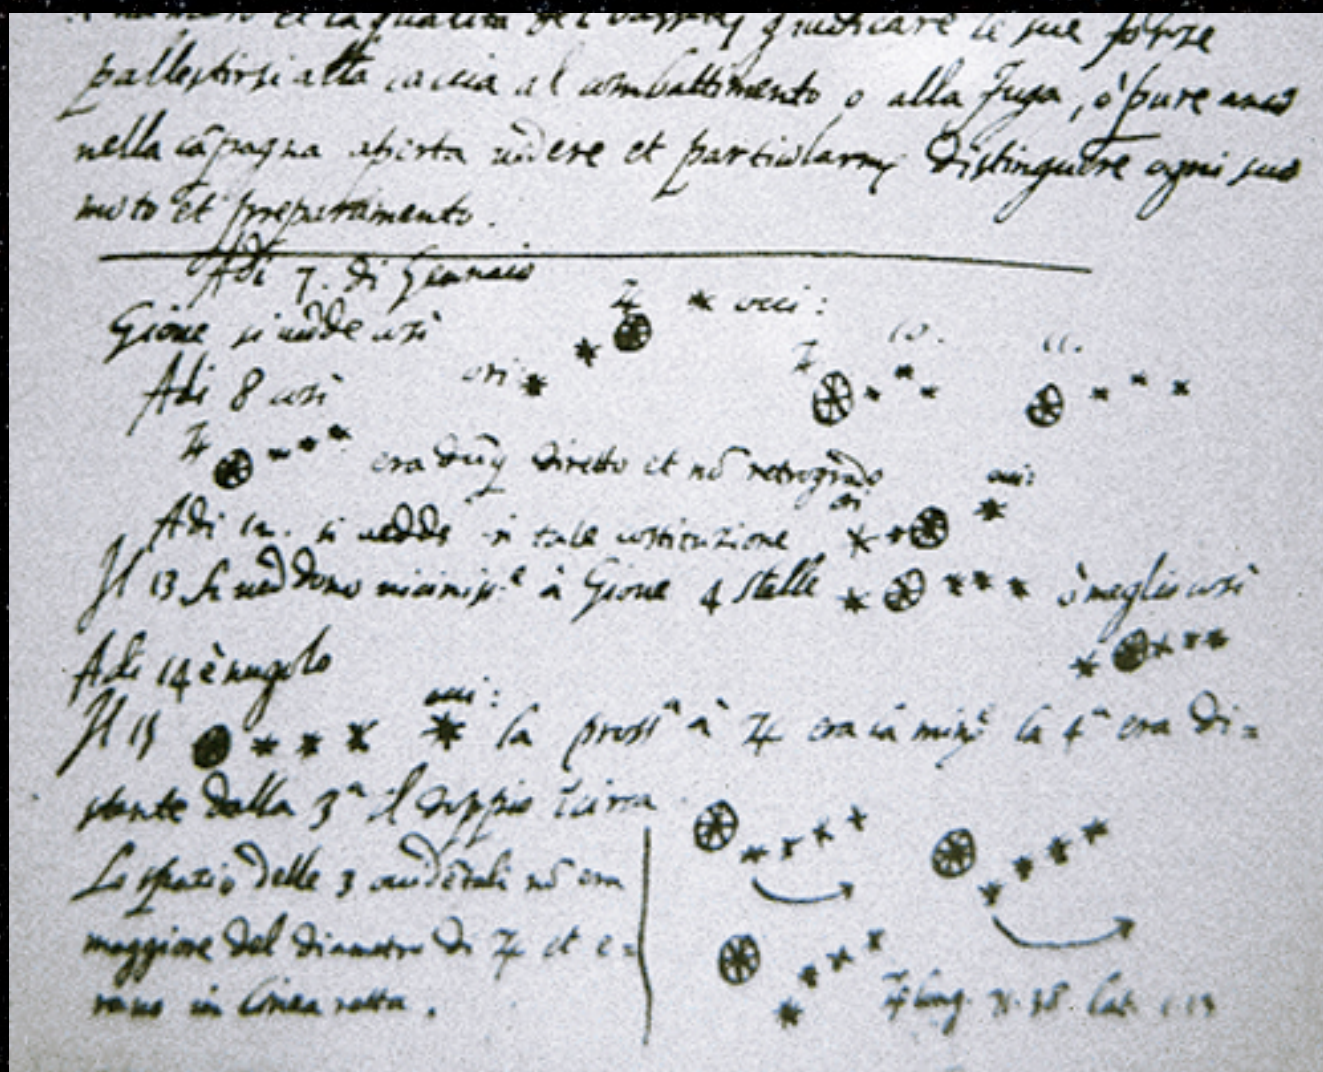 numero et la qualità de i vasselli giudicare le sue forze
pallestirsi alla caccia al combattimento o alla fuga, ò pure anco
nella cāpagna aperta videre et particolarmᵉ distinguere ogni suo
moto et preparamento.
Adi 7. di Gennaio
Gione si vedde così
♃ * occi:
Adi 8 così
ori * *
♃ 10. 11.
♃ era dūq diretto et nō retrogrado
Adi 12. si vedde in tale costituzione
ori * * occi: *
Il 13 si veddono vicinissᵉ à Giove 4 stelle * * * * ò meglio così
* * * *
Adi 14 è nugolo
Il 15 * * * * occi: la prossᵃ à ♃ era la minᵉ la 4ᵃ era di=
stante dalla 3ᵃ il doppio circa
Lo spazio delle 3 occidētali nō era
maggiore del diametro di ♃ et e=
rano in linea retta.
♃ long. 71.38 lat. 1.13